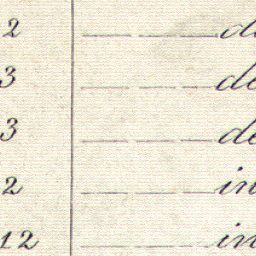 2 — — — d
3 — — — de
3 — — — de
2 — — — in
12 — — — in